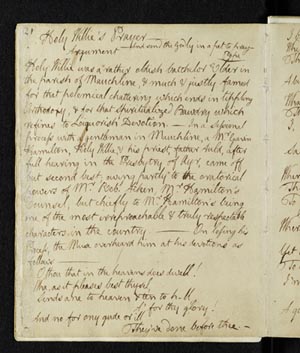 Holy Willie's Prayer —
"And send the Godly in a pet to pray —"
Pope
Argument
Holy Willie was a rather oldish batchelor Elder in
the parish of Mauchline, & much & justly famed
for that polemical chattering which ends in tippling
Orthodoxy, & for that Spiritualized Bawdry which
refines to Liquorish Devotion. — In a Sessional
process with a gentleman in Mauchline, a Mr. Gavin
Hamilton, Holy Willie, & his priest, father Auld, after
full hearing in the Presbytry of Ayr, came off
but second best; owing partly to the oratorical
powers of Mr. Robt. Aiken, Mr. Hamilton's
Counsel; but chiefly to Mr. Hamilton's being
one of the most irreproachable & truly respectable
characters in the country — On losing his
Process, the Muse overheard him at his devotions as
follows —
O thou that in the heavens does dwell!
Wha, as it pleases best thysel,
Sends ane to heaven & ten to h-ll,
A' for thy glory!
And no for ony gude or ill
They've done before thee. —